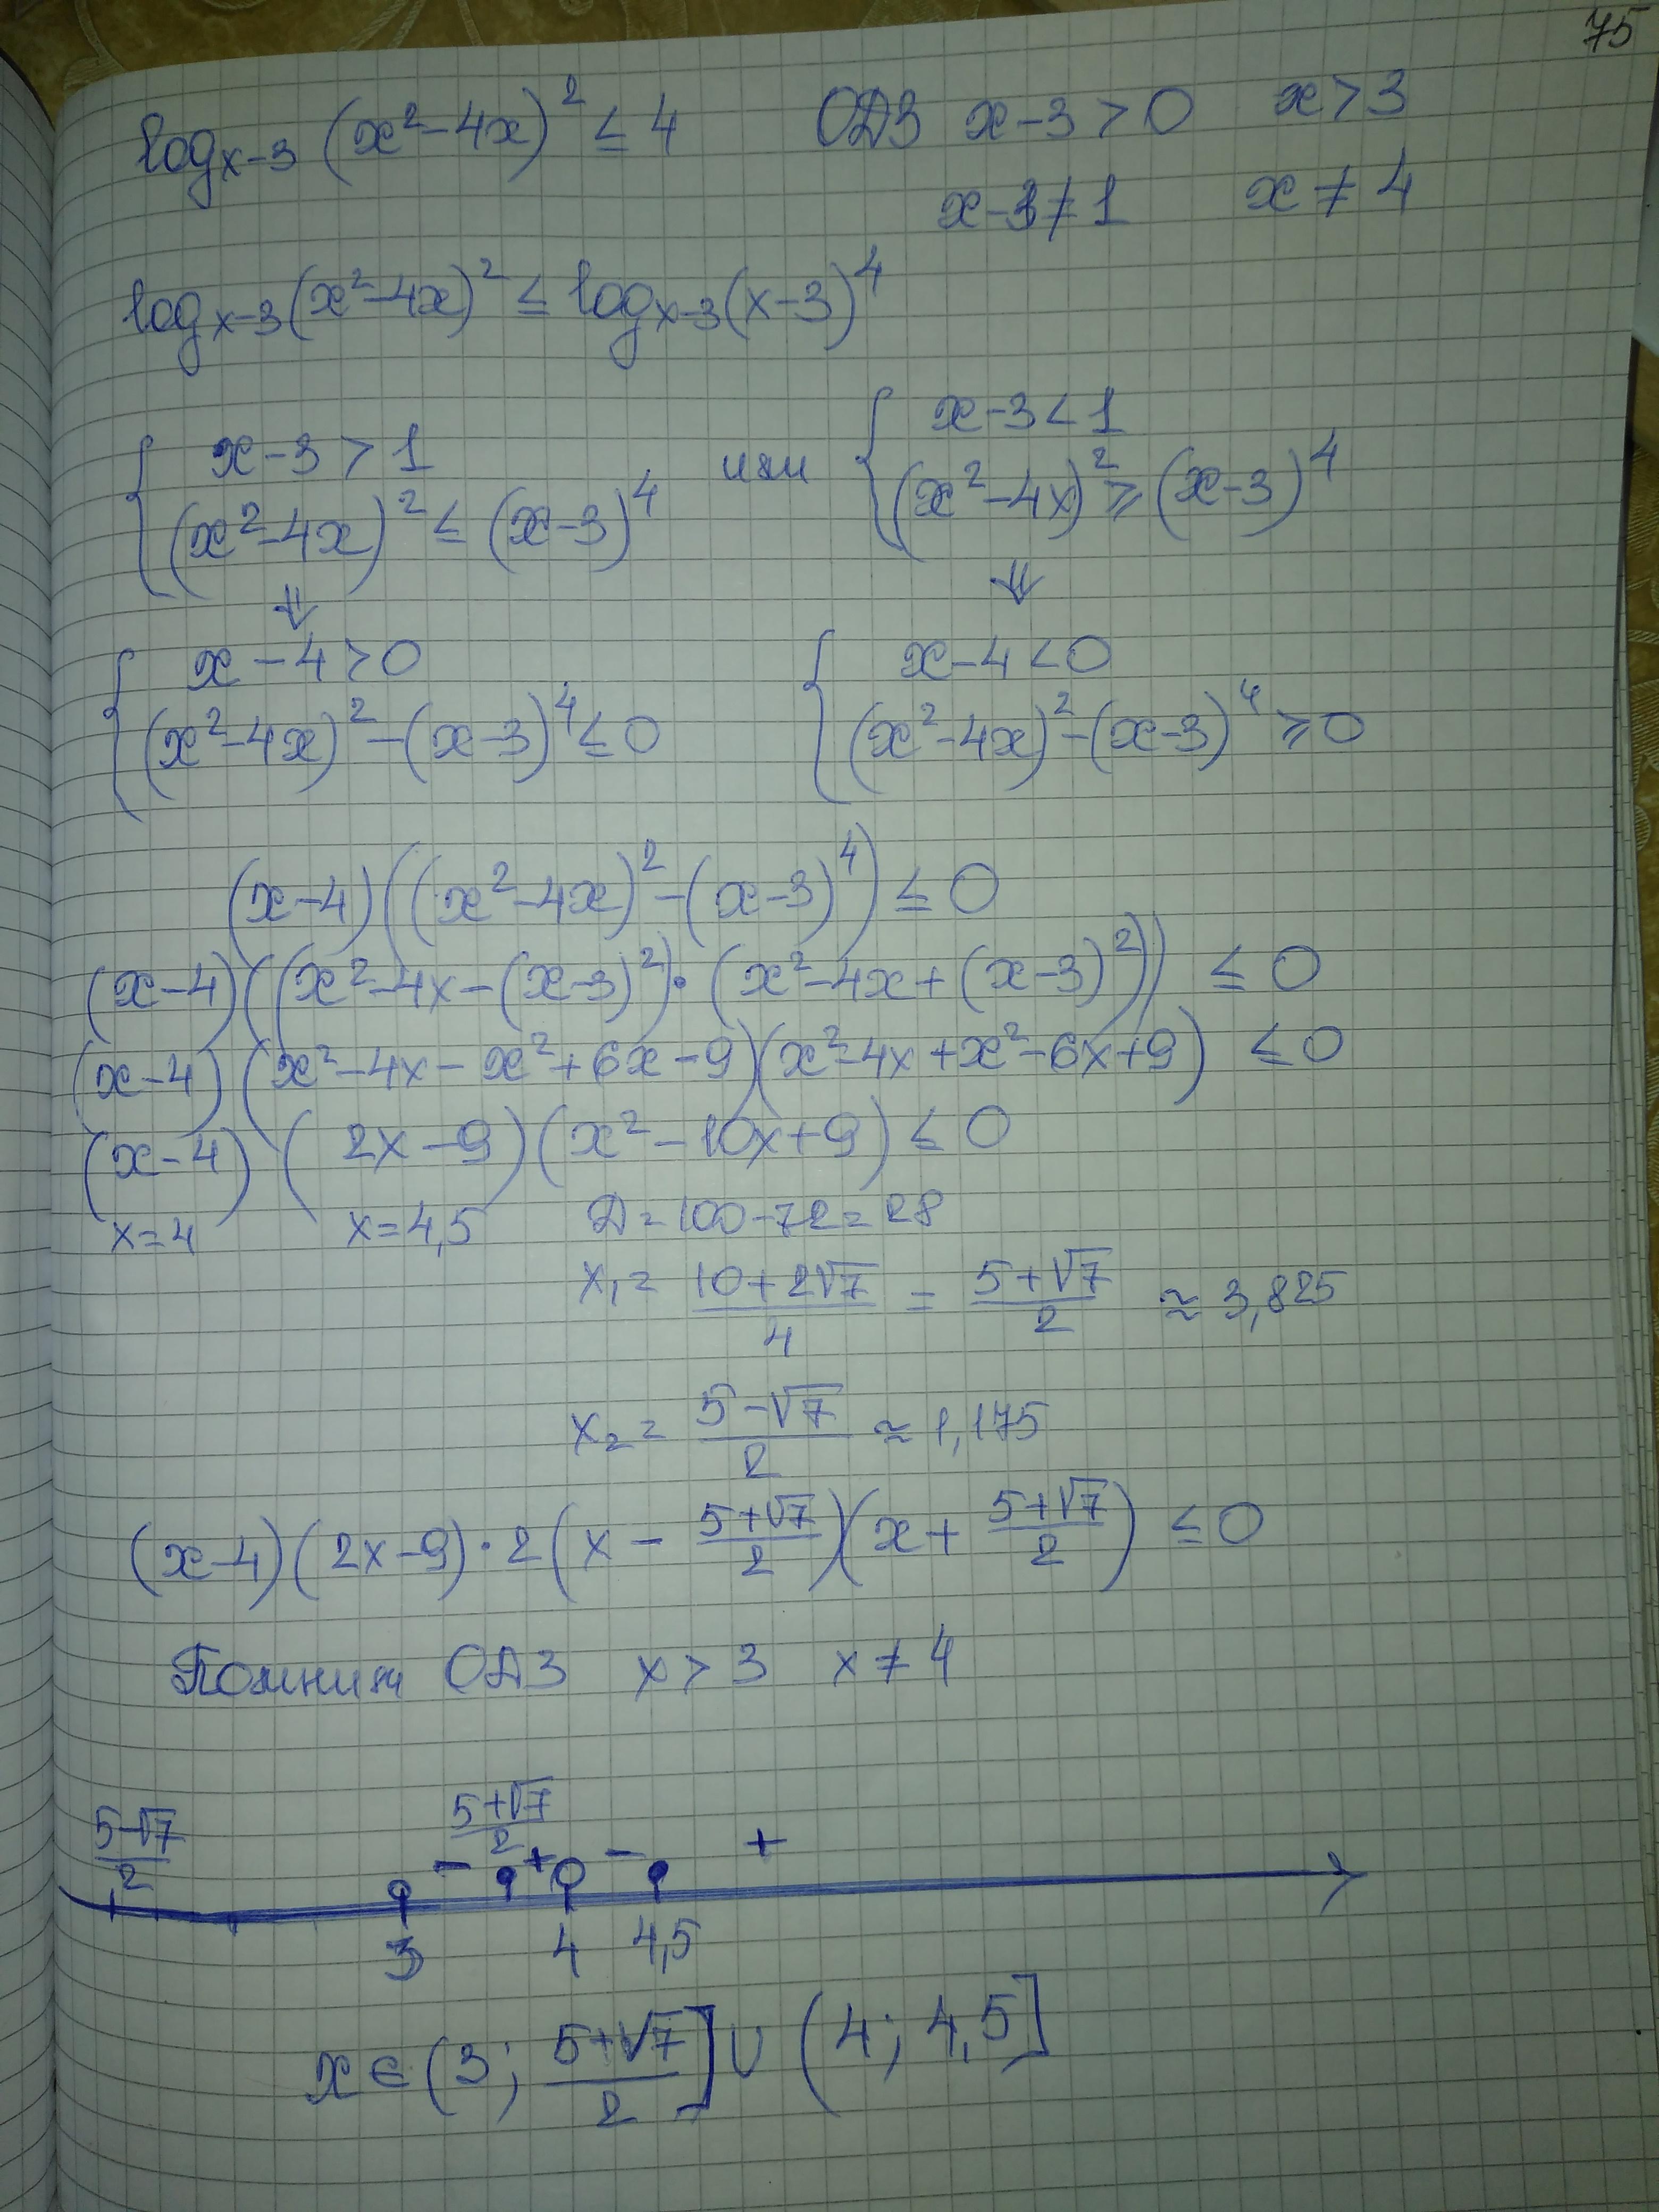 75
log_{x-3} (x²-4x)² ≤ 4 ОДЗ x-3 > 0 x > 3
x-3 ≠ 1 x ≠ 4
log_{x-3} (x²-4x)² ≤ log_{x-3} (x-3)⁴
{ x-3 > 1 или { x-3 < 1
(x²-4x)² ≤ (x-3)⁴ (x²-4x)² ≥ (x-3)⁴
⇓ ⇓
{ x-4 > 0 { x-4 < 0
(x²-4x)² - (x-3)⁴ ≤ 0 (x²-4x)² - (x-3)⁴ ≥ 0
(x-4)((x²-4x)² - (x-3)⁴) ≤ 0
(x-4)((x²-4x-(x-3)²)·(x²-4x+(x-3)²)) ≤ 0
(x-4)(x²-4x-x²+6x-9)(x²-4x+x²-6x+9) ≤ 0
(x-4)(2x-9)(x²-10x+9) ≤ 0
x=4 x=4,5 D=100-72=28
x₁ = (10+2√7)/4 = (5+√7)/2 ≈ 3,825
x₂ = (5-√7)/2 ≈ 1,175
(x-4)(2x-9)·2(x - (5+√7)/2)(x + (5+√7)/2) ≤ 0
Помним ОДЗ x > 3 x ≠ 4
(5-√7)/2 (5+√7)/2
- + - +
3 4 4,5
x ∈ (3; (5+√7)/2] ∪ (4; 4,5]